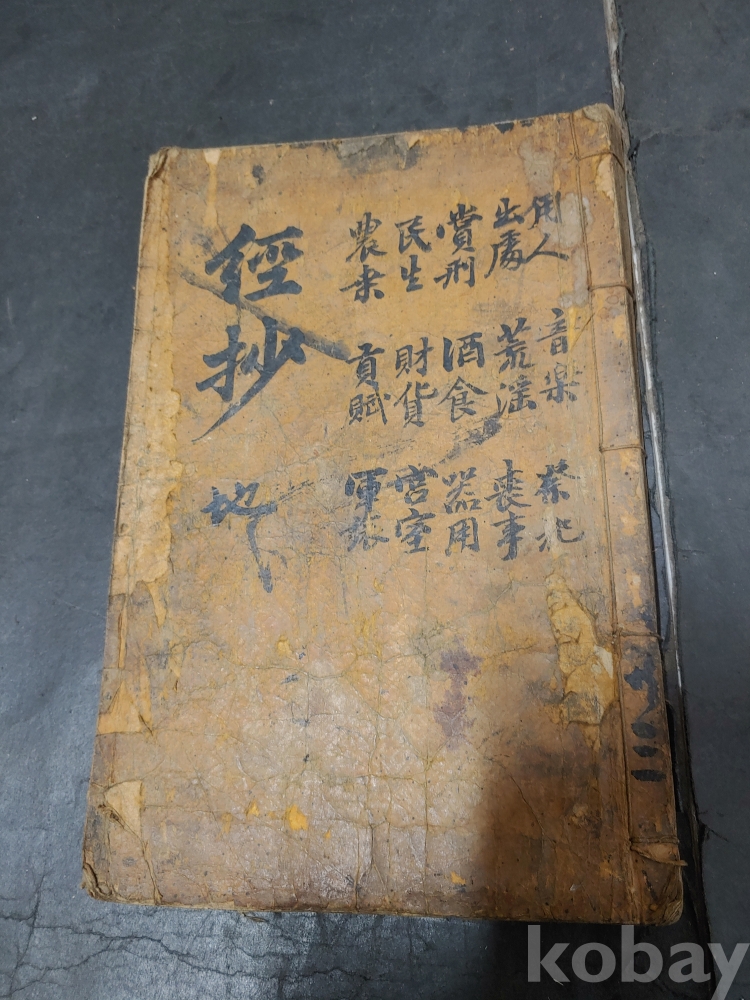 用人 音楽 祭祀
出處 荒淫 喪事
賞刑 酒食 器用
民生 財貨 宮室
農桒 貢賦 軍旅
經抄 地
kobay